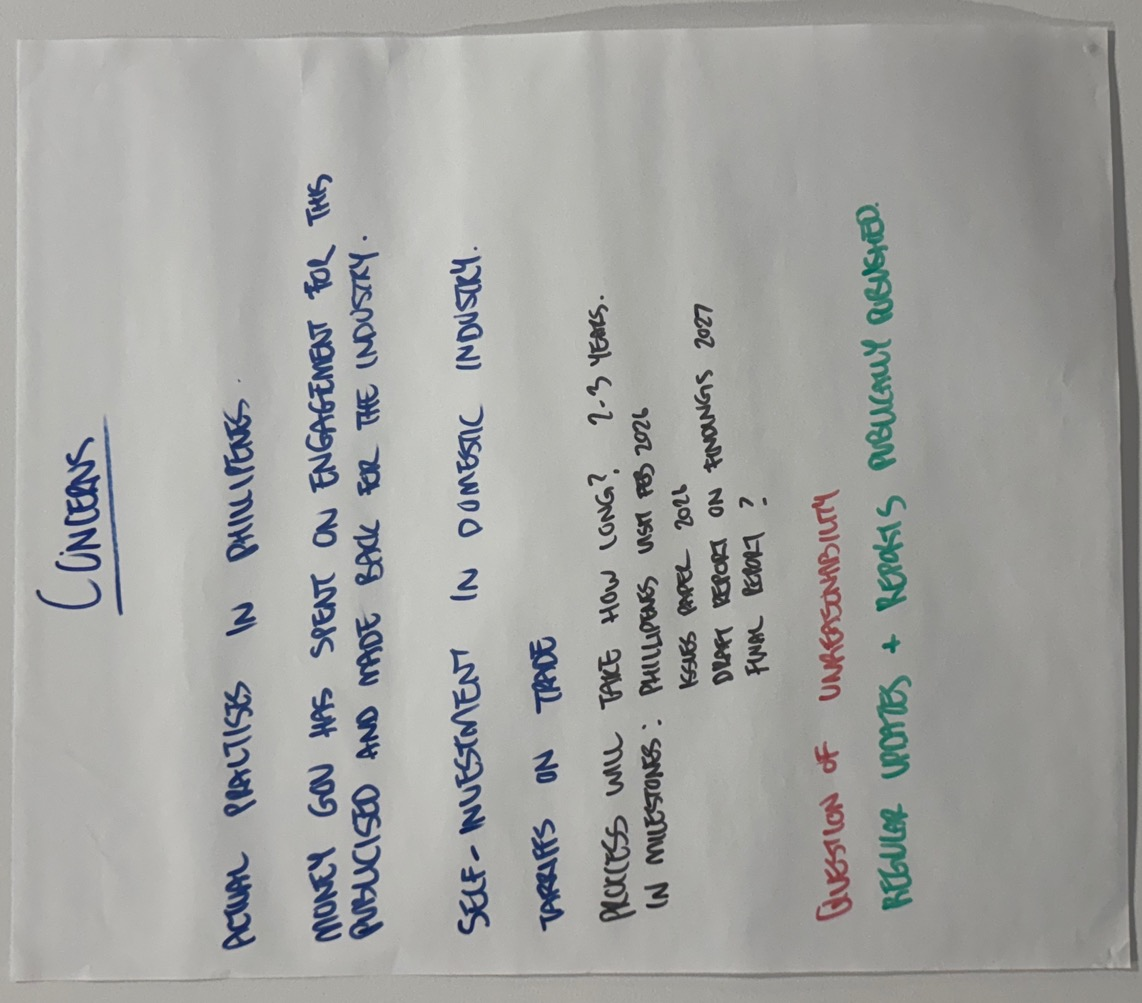 CONCERNS
ACTUAL PRACTISES IN PHILLIPENES.
MONEY GOV HAS SPENT ON ENGAGEMENT FOR THIS
PUBLICISED AND MADE BACK FOR THE INDUSTRY.
SELF-INVESTMENT IN DOMESTIC INDUSTRY.
TARRIFFS ON TRADE
PROCESS WILL TAKE HOW LONG? 2-3 YEARS.
IN MILESTONES: PHILLIPENES VISIT FEB 2026
ISSUES PAPER 2026
DRAFT REPORT ON FINDINGS 2027
FINAL REPORT ?
QUESTION OF UNREASONABILITY
REGULAR UPDATES + REPORTS PUBLICALLY PUBLISHED.